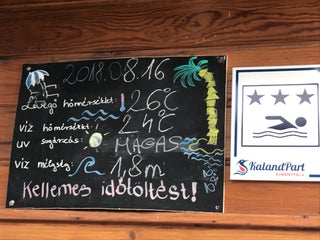 2018.08.16
Levegő hőmérséklet: 26°C
VÍZ hőmérséklet: 24°C
UV sugárzás: MAGAS
VÍZ mélység: 1,8m
Kellemes időtöltést!
KalandPart